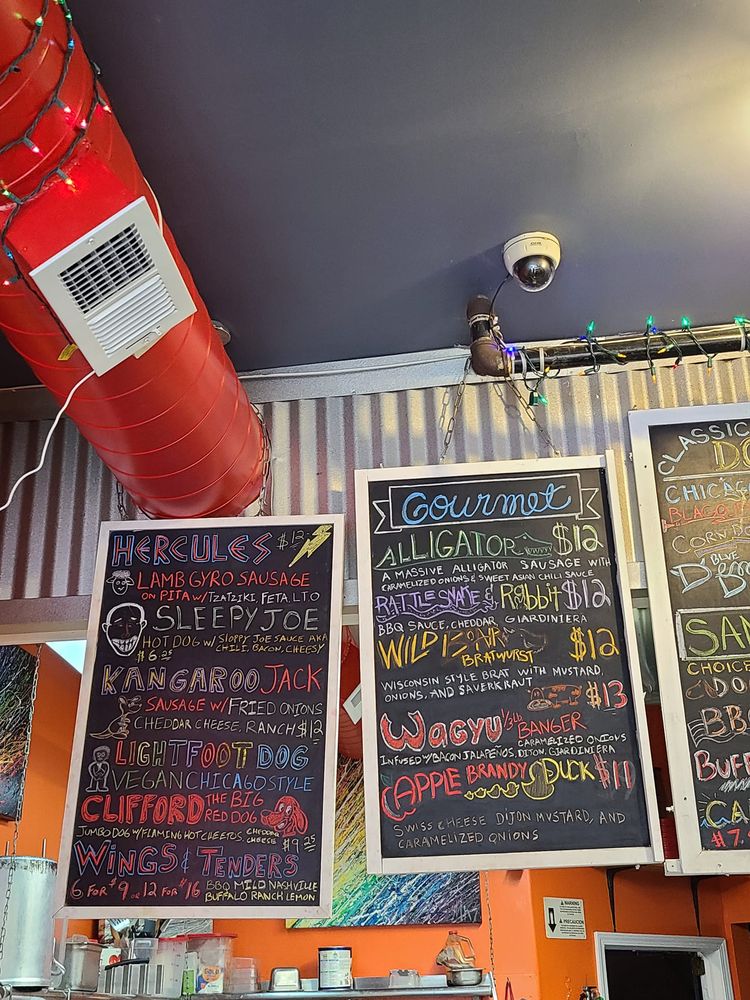 HERCULES $13
LAMB GYRO SAUSAGE
ON PITA W/TZATZIKI, FETA, LTO
SLEEPY JOE
HOT DOG W/ SLOPPY JOE SAUCE AKA
CHILI, BACON, CHEESY
$6.25
KANGAROO JACK
SAUSAGE W/FRIED ONIONS
CHEDDAR CHEESE, RANCH $12
LIGHTFOOT DOG
VEGAN CHICAGO STYLE
CLIFFORD THE BIG
RED DOG
JUMBO DOG W/FLAMING HOT CHEETOS, CHEDDAR
CHEESE $9.25
WINGS & TENDERS
6 FOR $9 OR 12 FOR $16 BBQ MILD NASHVILLE
BUFFALO RANCH LEMON
Gourmet
ALLIGATOR $12
A MASSIVE ALLIGATOR SAUSAGE WITH
CARAMELIZED ONIONS & SWEET ASIAN CHILI SAUCE
RATTLESNAKE & Rabbit $12
BBQ SAUCE, CHEDDAR, GIARDINIERA
WILD BOAR $12
BRATWURST
WISCONSIN STYLE BRAT WITH MUSTARD,
ONIONS, AND SAUERKRAUT
$13
WAGYU 1/3 LB BANGER
CARAMELIZED ONIONS
INFUSED W/BACON JALAPEÑOS, DIJON, GIARDINIERA
APPLE BRANDY DUCK $11
SWISS CHEESE DIJON MUSTARD, AND
CARAMELIZED ONIONS
CLASSIC
DO
CHICAG
BLAGO
CORN D
BLUE
SAN
CHOICE
DO
BB
BUFF
CA
$7.
WARNING
PRECAUCION